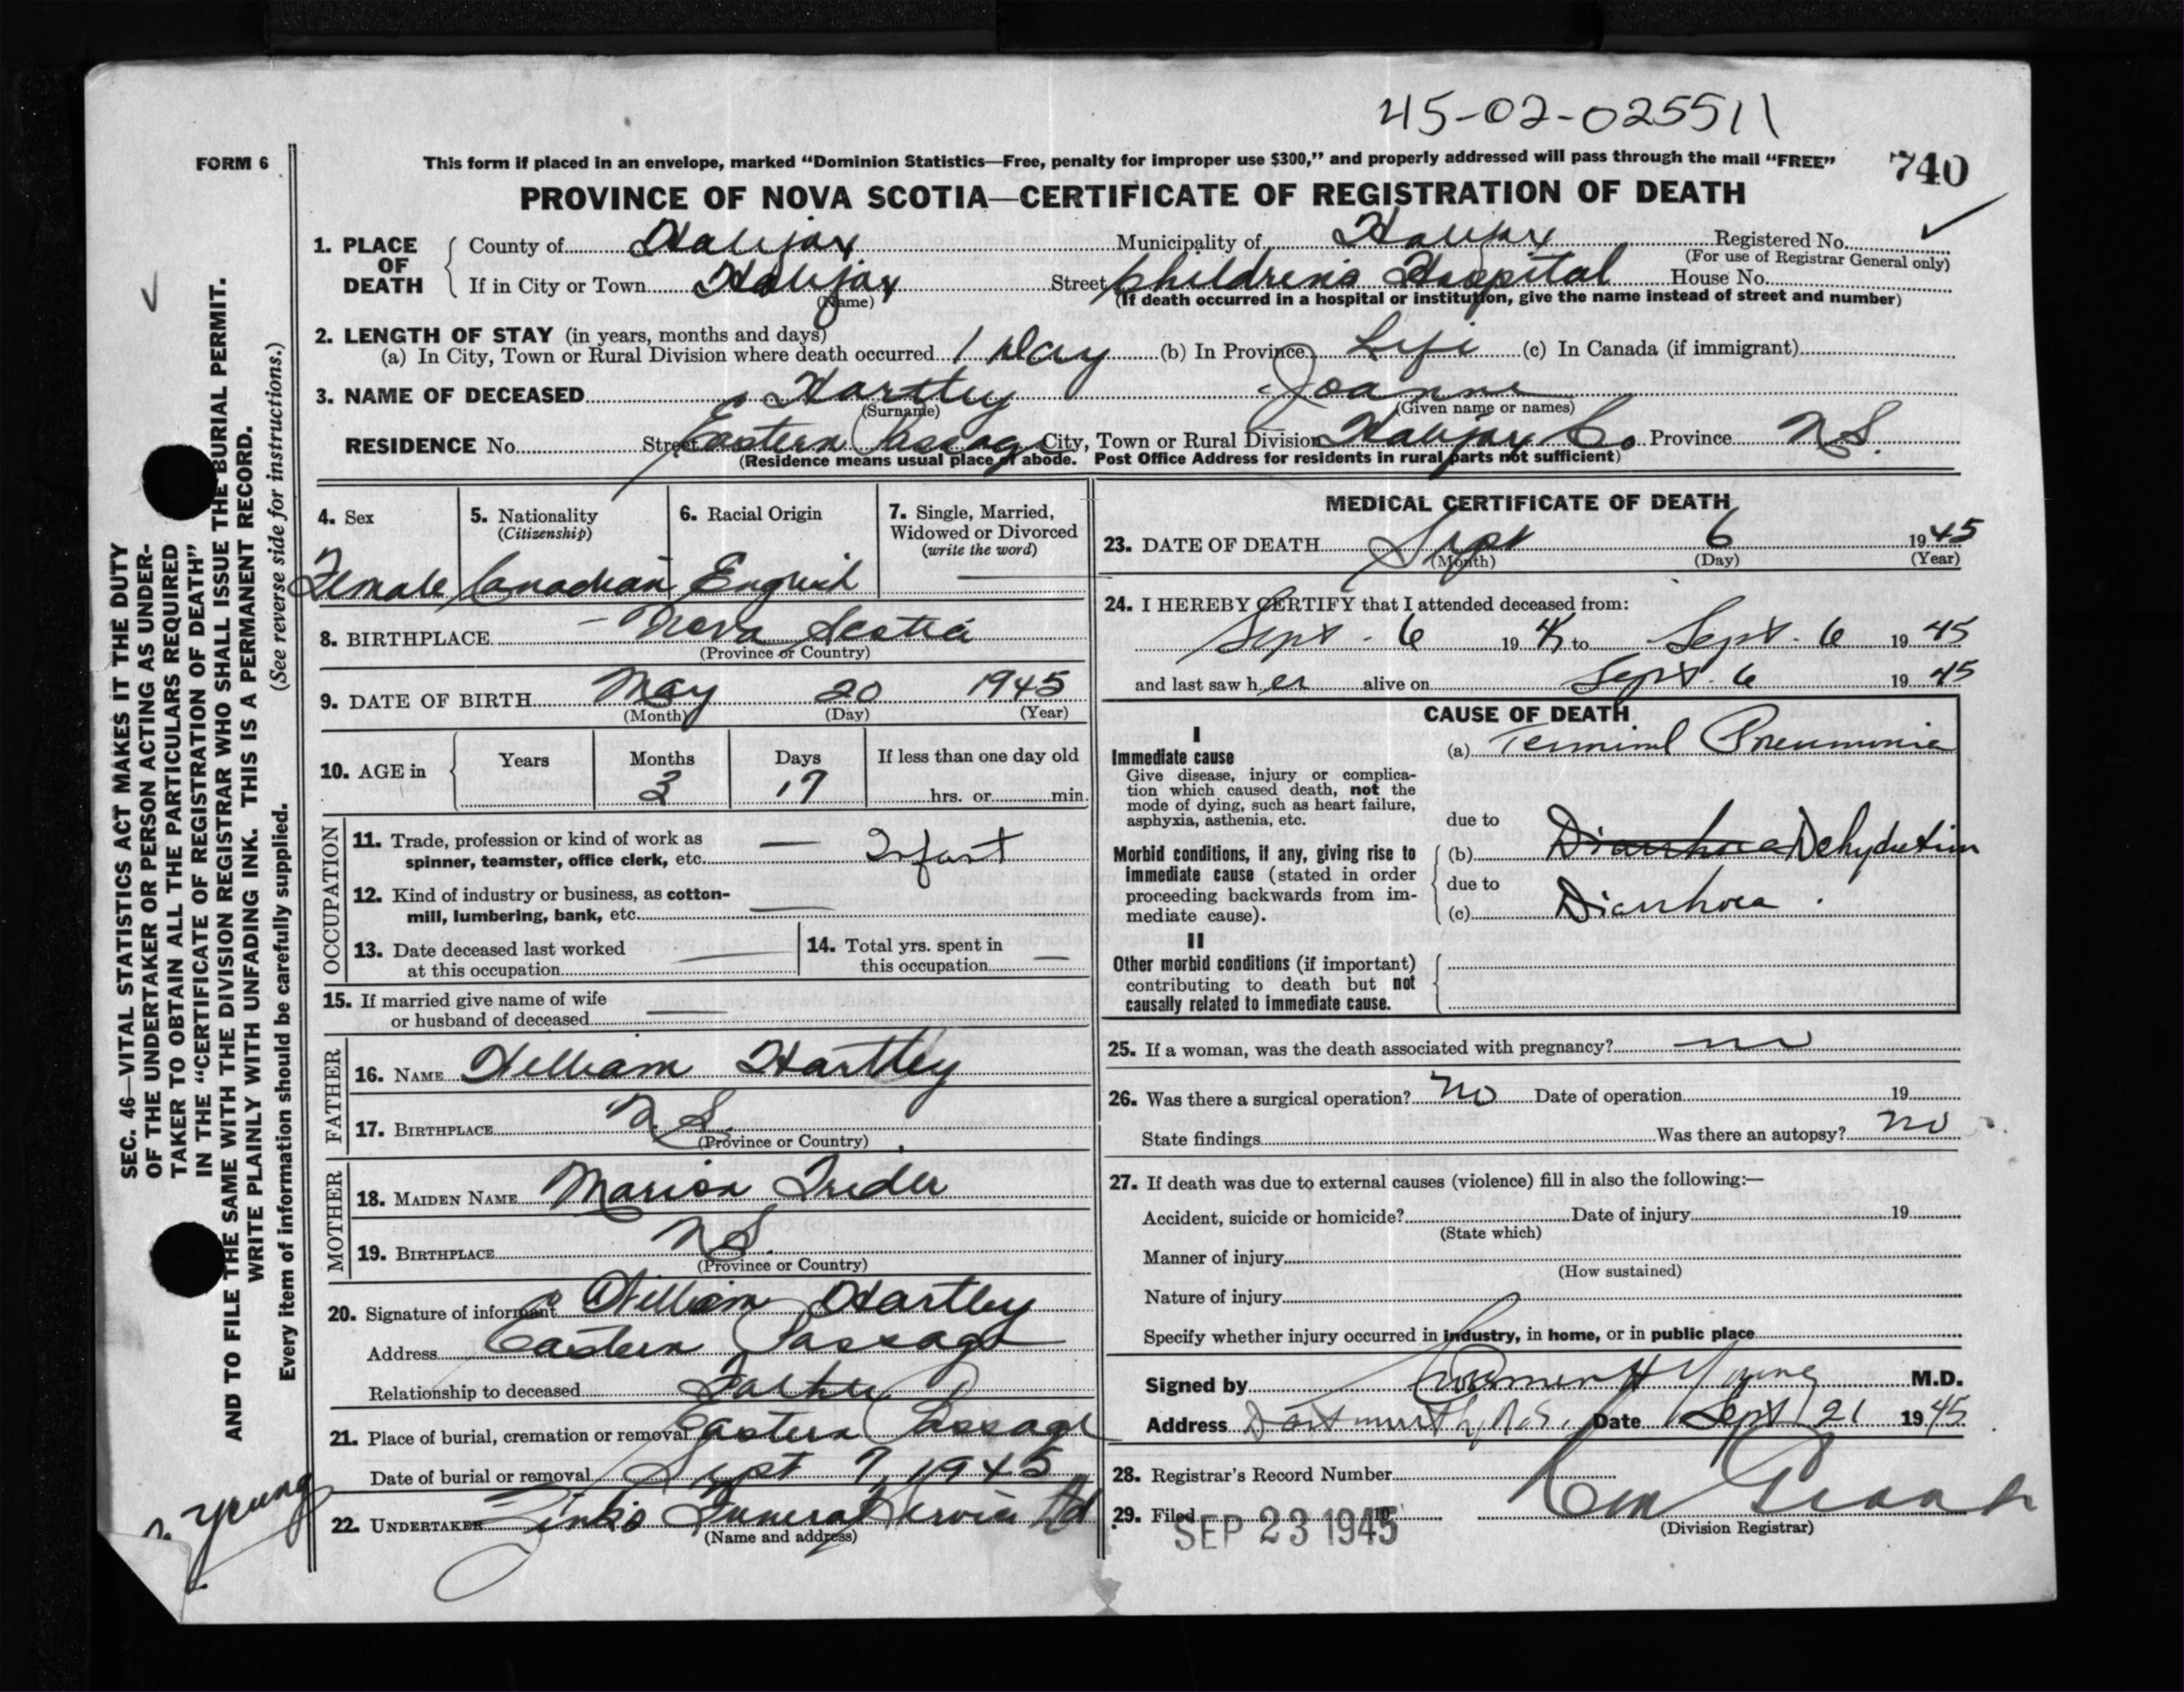 45-02-025511
FORM 6
This form if placed in an envelope, marked “Dominion Statistics—Free, penalty for improper use $300,” and properly addressed will pass through the mail “FREE”
740
PROVINCE OF NOVA SCOTIA—CERTIFICATE OF REGISTRATION OF DEATH
1. PLACE OF DEATH
County of Halifax Municipality of Halifax Registered No.
(For use of Registrar General only)
If in City or Town Halifax Street Children's Hospital House No.
(Name) (If death occurred in a hospital or institution, give the name instead of street and number)
2. LENGTH OF STAY (in years, months and days)
(a) In City, Town or Rural Division where death occurred 1 Day (b) In Province Life (c) In Canada (if immigrant)
3. NAME OF DECEASED Hartley Joanne
(Surname) (Given name or names)
RESIDENCE No. Street Eastern Passage City, Town or Rural Division Halifax Co Province N.S.
(Residence means usual place of abode. Post Office Address for residents in rural parts not sufficient)
4. Sex
Female
5. Nationality
(Citizenship)
Canadian
6. Racial Origin
English
7. Single, Married,
Widowed or Divorced
(write the word)
8. BIRTHPLACE Nova Scotia
(Province or Country)
9. DATE OF BIRTH May 20 1945
(Month) (Day) (Year)
10. AGE in Years Months Days If less than one day old
3 17 hrs. or min.
OCCUPATION
11. Trade, profession or kind of work as
spinner, teamster, office clerk, etc. — Infant
12. Kind of industry or business, as cotton-
mill, lumbering, bank, etc.
13. Date deceased last worked
at this occupation
14. Total yrs. spent in
this occupation
15. If married give name of wife
or husband of deceased
FATHER
16. NAME William Hartley
17. BIRTHPLACE N.S.
(Province or Country)
MOTHER
18. MAIDEN NAME Marion Trider
19. BIRTHPLACE N.S.
(Province or Country)
20. Signature of informant William Hartley
Address Eastern Passage
Relationship to deceased Father
21. Place of burial, cremation or removal Eastern Passage
Date of burial or removal Sept 7, 1945
22. UNDERTAKER Zink's Funeral Service Ltd
(Name and address)
MEDICAL CERTIFICATE OF DEATH
23. DATE OF DEATH Sept 6 1945
(Month) (Day) (Year)
24. I HEREBY CERTIFY that I attended deceased from:
Sept. 6 1945 to Sept. 6 1945
and last saw her alive on Sept. 6 1945
CAUSE OF DEATH
I
Immediate cause
Give disease, injury or complica-
tion which caused death, not the
mode of dying, such as heart failure,
asphyxia, asthenia, etc.
(a) Terminal Pneumonia
due to
Morbid conditions, if any, giving rise to
immediate cause (stated in order
proceeding backwards from im-
mediate cause).
(b) Diarrhoea Dehydration
due to
(c) Diarrhoea.
II
Other morbid conditions (if important)
contributing to death but not
causally related to immediate cause.
25. If a woman, was the death associated with pregnancy? no
26. Was there a surgical operation? no Date of operation 19
State findings Was there an autopsy? no
27. If death was due to external causes (violence) fill in also the following:—
Accident, suicide or homicide? Date of injury 19
(State which)
Manner of injury
(How sustained)
Nature of injury
Specify whether injury occurred in industry, in home, or in public place
Signed by H Young M.D.
Address Dartmouth, N.S. Date Sept 21 1945
28. Registrar's Record Number
29. Filed 19
SEP 23 1945
(Division Registrar)
SEC. 46—VITAL STATISTICS ACT MAKES IT THE DUTY
OF THE UNDERTAKER OR PERSON ACTING AS UNDER-
TAKER TO OBTAIN ALL THE PARTICULARS REQUIRED
IN THE “CERTIFICATE OF REGISTRATION OF DEATH”
AND TO FILE THE SAME WITH THE DIVISION REGISTRAR WHO SHALL ISSUE THE BURIAL PERMIT.
WRITE PLAINLY WITH UNFADING INK. THIS IS A PERMANENT RECORD.
(See reverse side for instructions.)
Every item of information should be carefully supplied.
Young